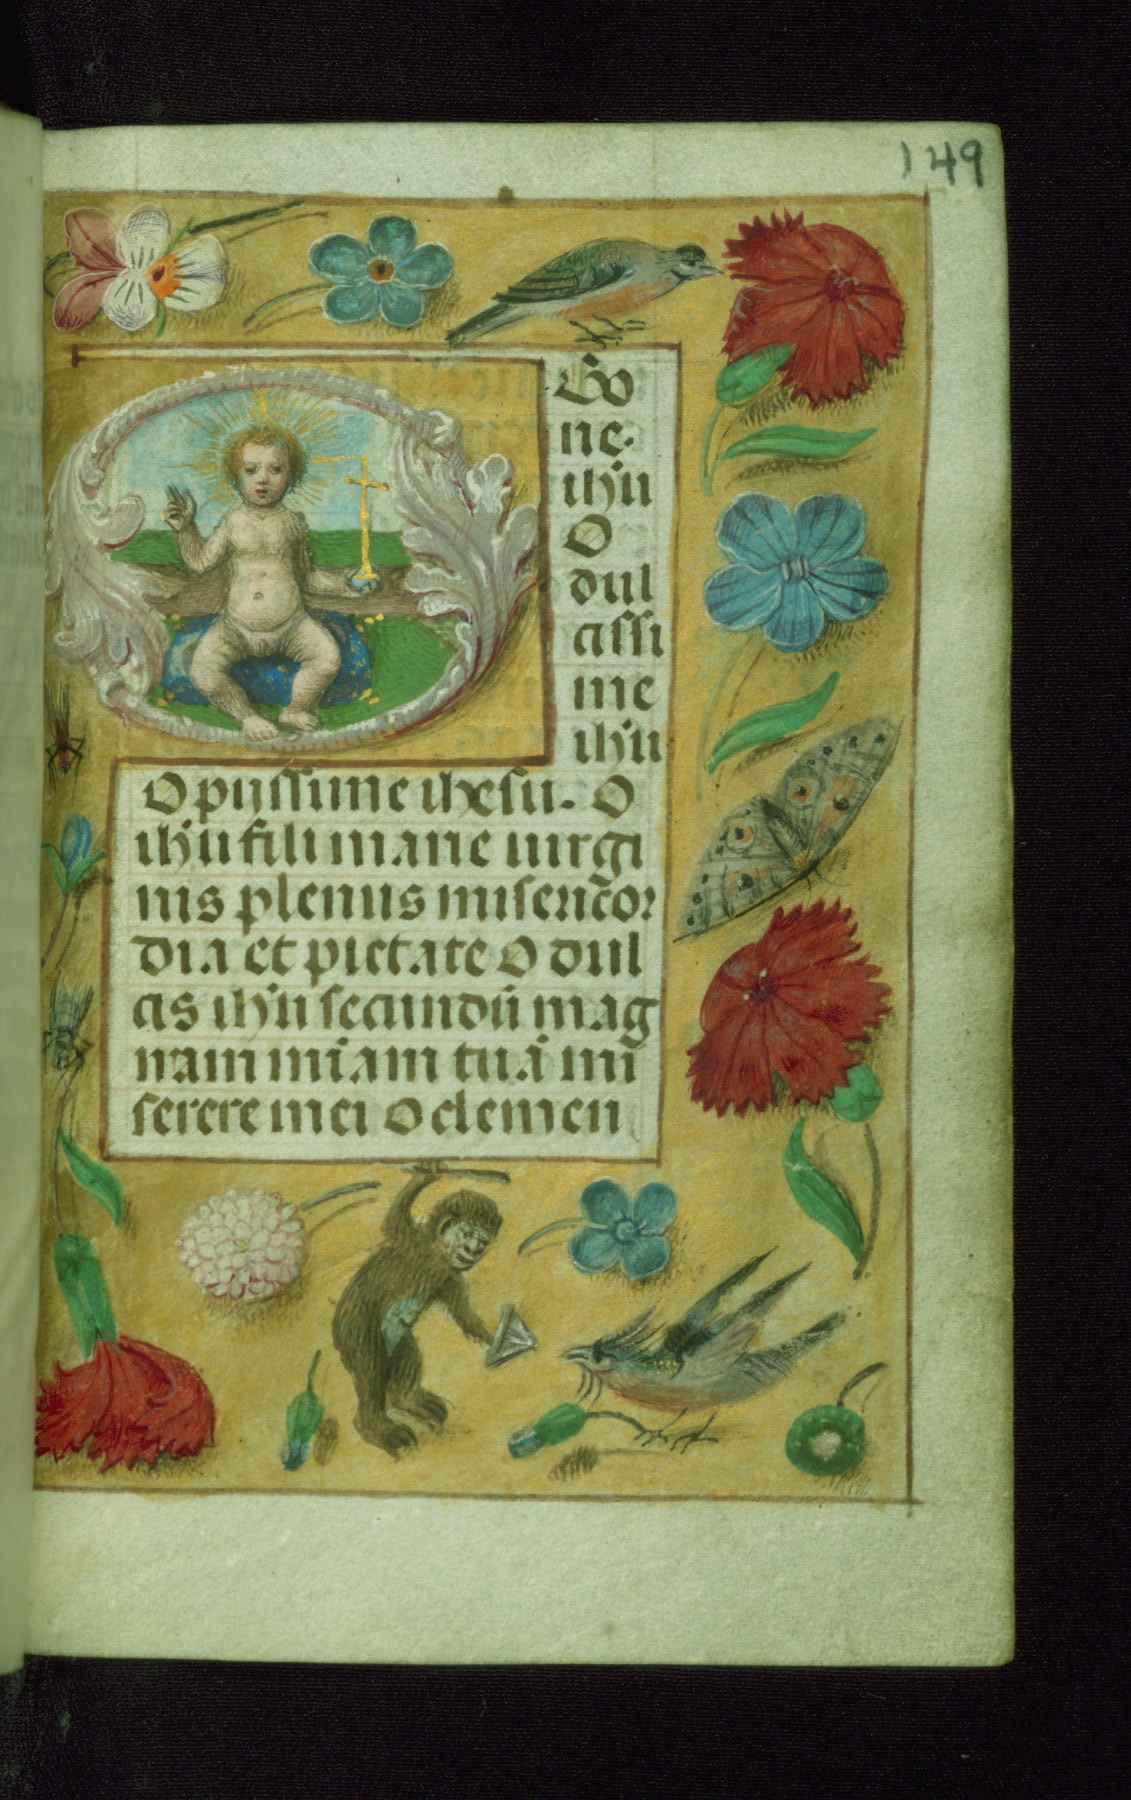 149
O Bo
ne.
ihu
O
dul
cissi
me
ihu
O pijssime ihesu. O
ihu fili marie uirgi
nis plenus misericor
dia et pietate O dul
cis ihu secundū mag
nam miam tuā mi
serere mei O clemen